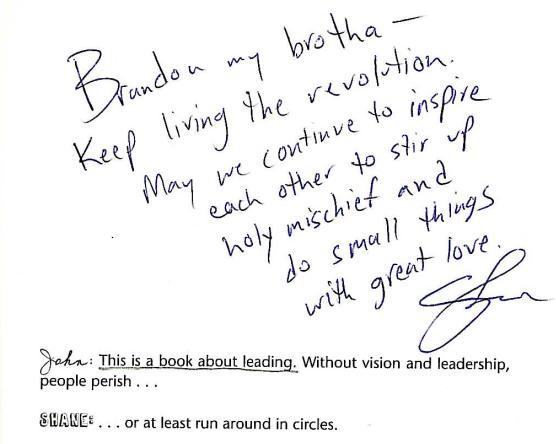 Brandon my brotha —
Keep living the revolution.
May we continue to inspire
each other to stir up
holy mischief and
do small things
with great love.
John: This is a book about leading. Without vision and leadership,
people perish . . .
SHANE: . . . or at least run around in circles.